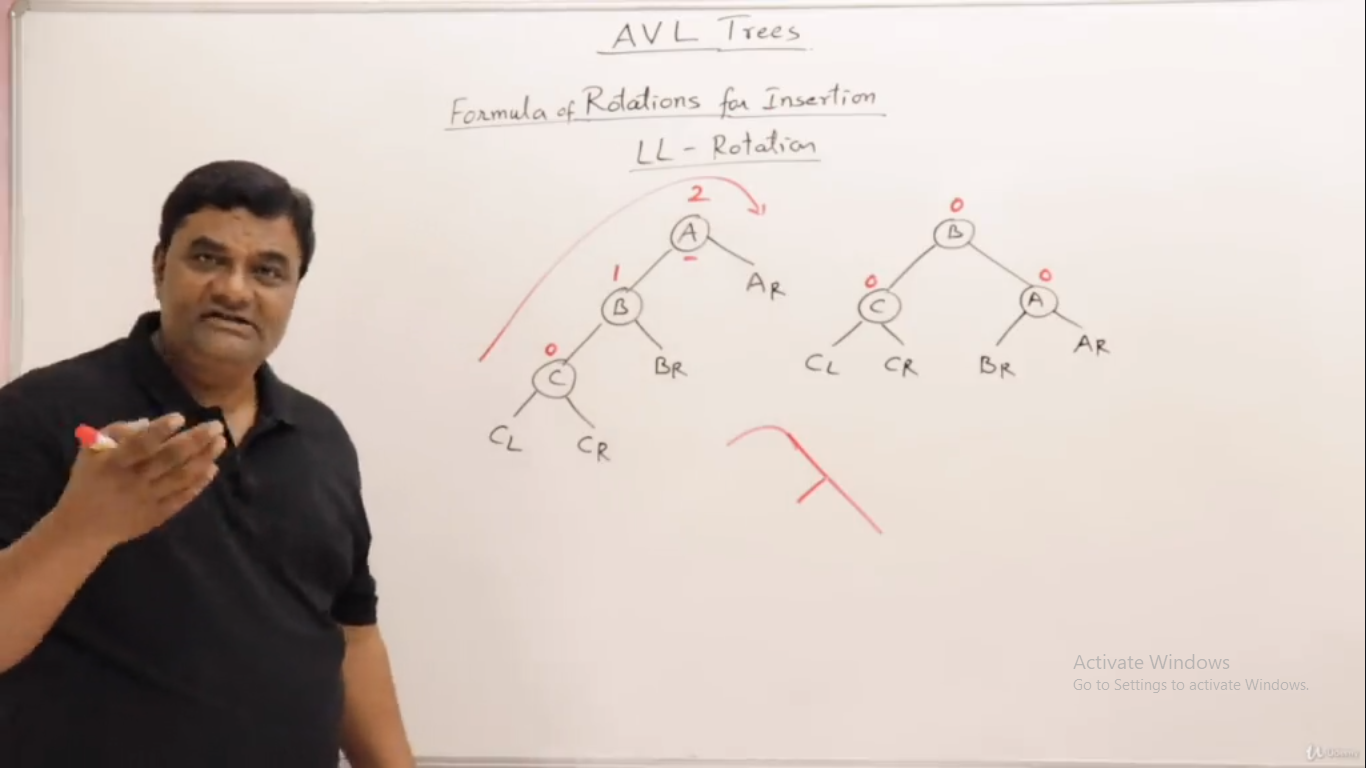 AVL Trees
Formula of Rotations for Insertion
LL - Rotation
2
A
1
B
AR
0
C
BR
CL
CR
0
B
0
C
0
A
CL
CR
BR
AR
Activate Windows
Go to Settings to activate Windows.
Udemy